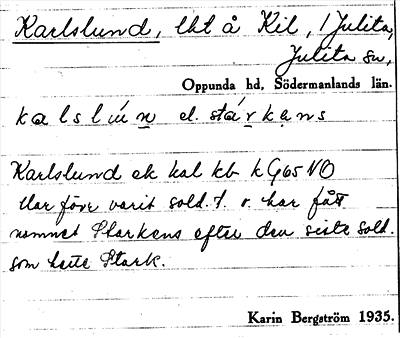 Karlslund, lht å Kil, i Julita,
Julita sn,
Oppunda hd, Södermanlands län.
kalslún el. stárkans
Karlslund ek kal kb kG65NO
Har förr varit sold.t. o. har fått
namnet Starkens efter den siste sold.
som hette Stark.
Karin Bergström 1935.